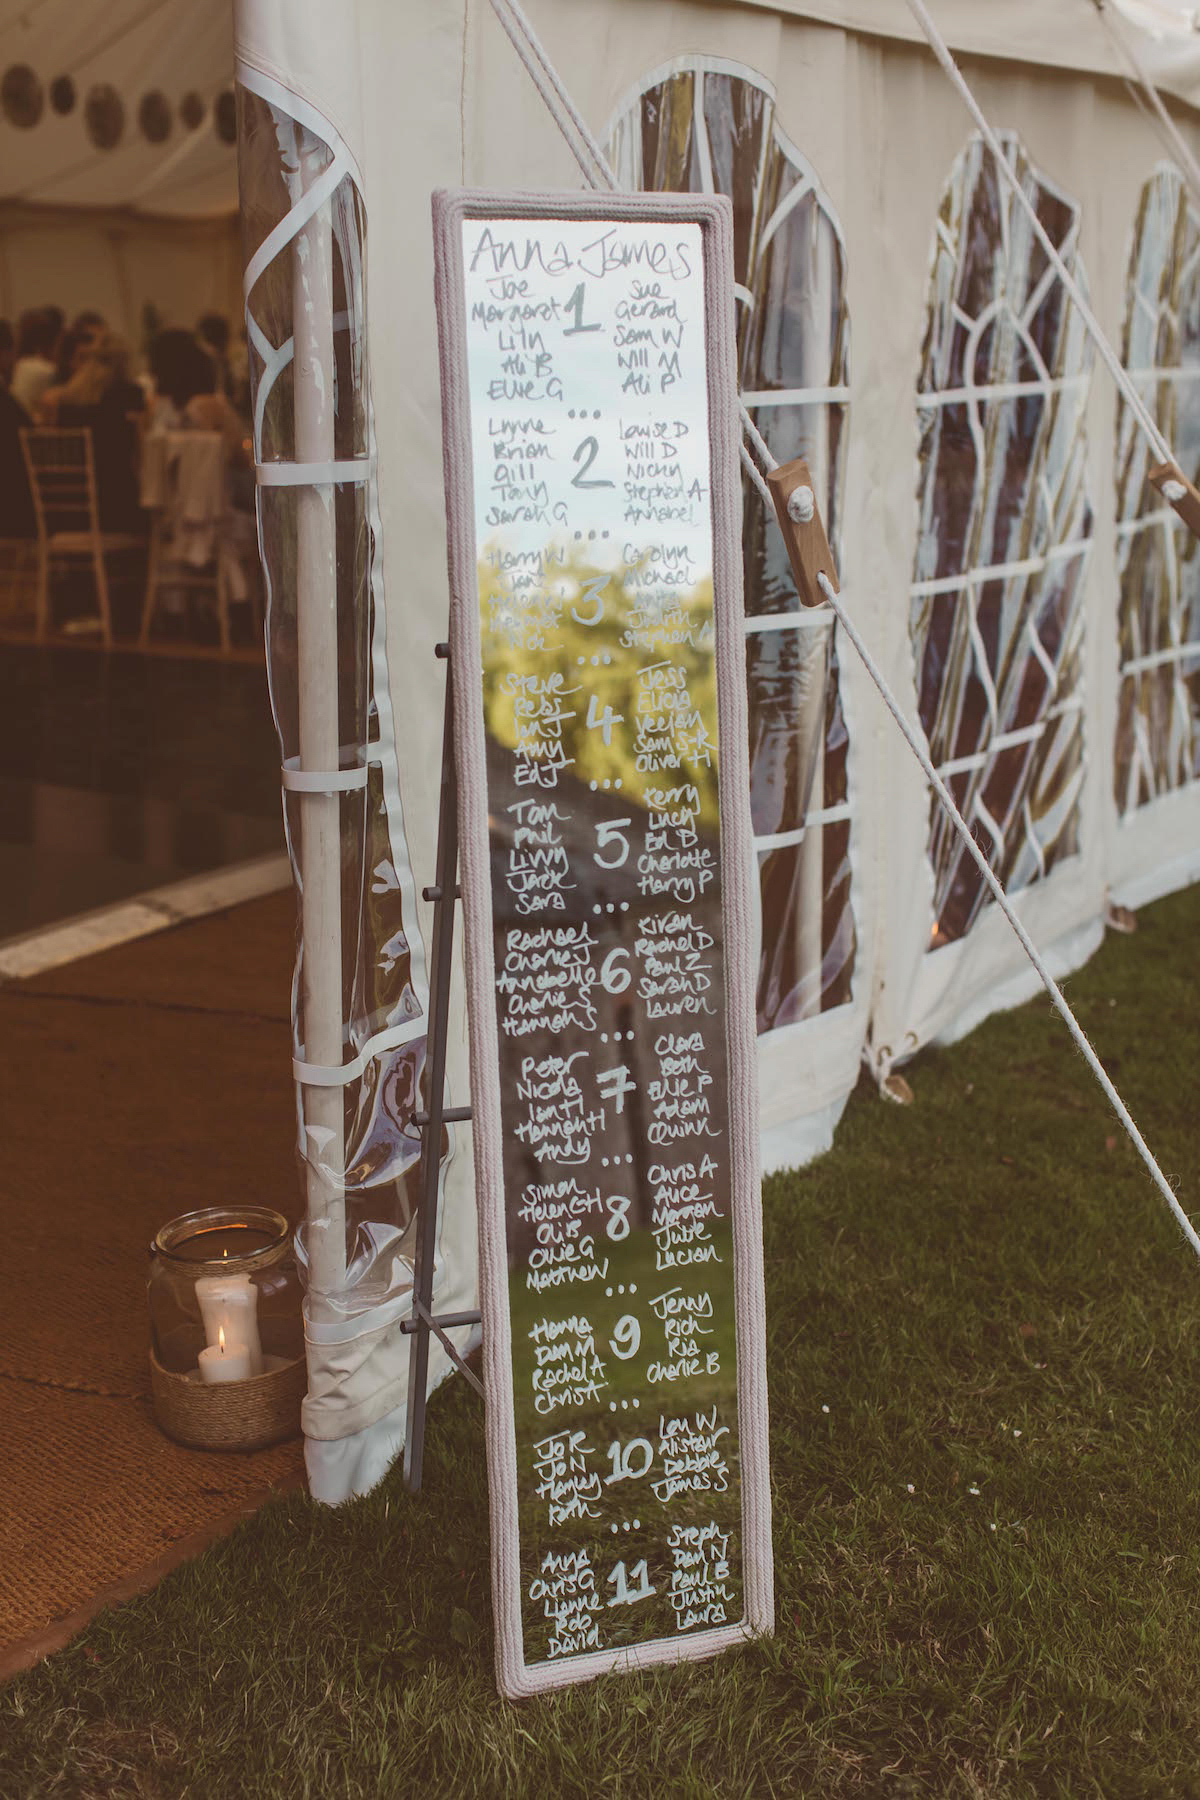 Anna James
1
Joe
Margaret
Lily
Ali B
Ellie G
Sue
Gerard
Sam W
Will M
Ali P
...
2
Lynne
Brian
Gill
Tony
Sarah G
Louise D
Will D
Nicky
Stephen A
Annabel
...
3
Harry W
Carolyn
Michael
Judith
...
4
Steve
Rebs
Ian J
Amy
Ed J
Jess
Elicia
Sam S-R
Oliver H
...
5
Tom
Phil
Livvy
Jack
Sara
Kerry
Lucy
Ed B
Charlotte
Harry P
...
6
Rachael
Charlie J
Annabelle
Charlie S
Hannah S
Kiran
Rachel D
Paul Z
Sarah D
Lauren
...
7
Peter
Nicola
Ian H
Hannah H
Andy
Clara
Beth
Ellie P
Adam
Quinn
...
8
Simon
Helen C-H
Oli B
Ollie G
Matthew
Chris A
Alice
Morgan
Lucian
...
9
Hanna
Dan M
Rachel A
Chris A
Jenny
Rich
Ria
Charlie B
...
10
Jo R
Jo N
Hayley
Kath
Lou W
Alistair
Debbie
James S
...
11
Anna
Chris G
Lianne
Rob
David
Steph
Dan N
Paul B
Justin
Laura